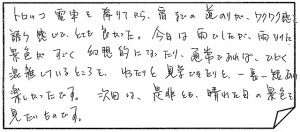 トロッコ電車を降りてから、宿までの道のりが、ワクワク感を
誘う感じで、とても良かった。今日は雨でしたが、雨だと
景色がすごく幻想的になったり、通常であれば、とにかく
混雑しているところを、ゆったり見学できたりと、一喜一憂あり
楽しかったです。 次回は、是非とも、晴れた日の景色を
見たいものです。